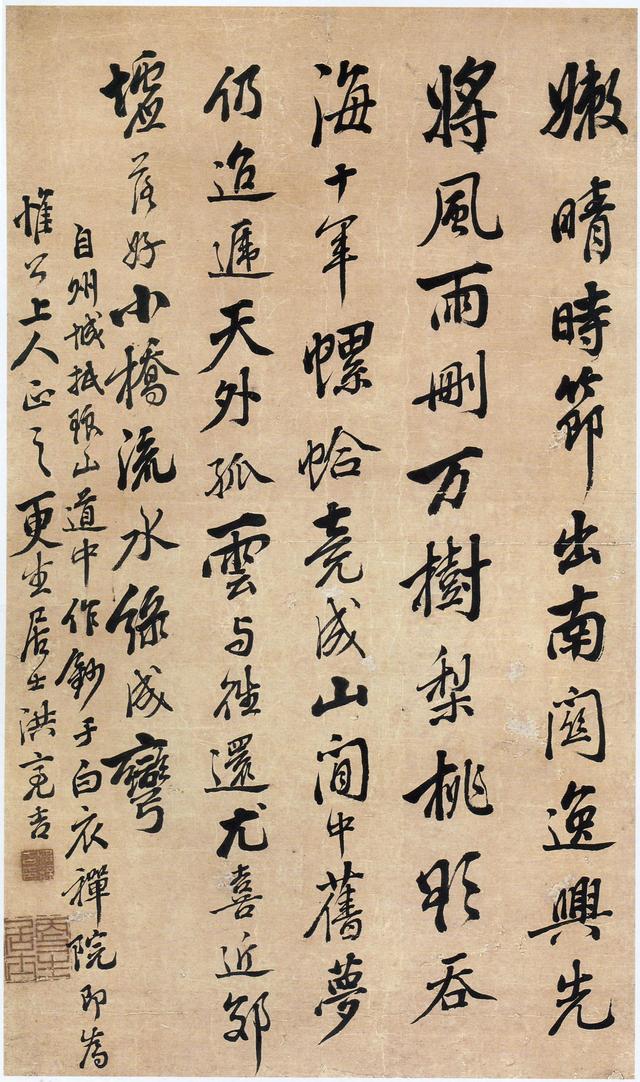 嫩晴時節出南關逸興先
將風雨刪万樹梨桃欲吞
海十年螺蛤竟成山閒中舊夢
仍迢遞天外孤雲与往還尤喜近郊
墟落好小橋流水綠成彎
自州城抵狼山道中作鈔于白衣禪院即為
惟公上人正之更生居士洪亮吉
更生居士